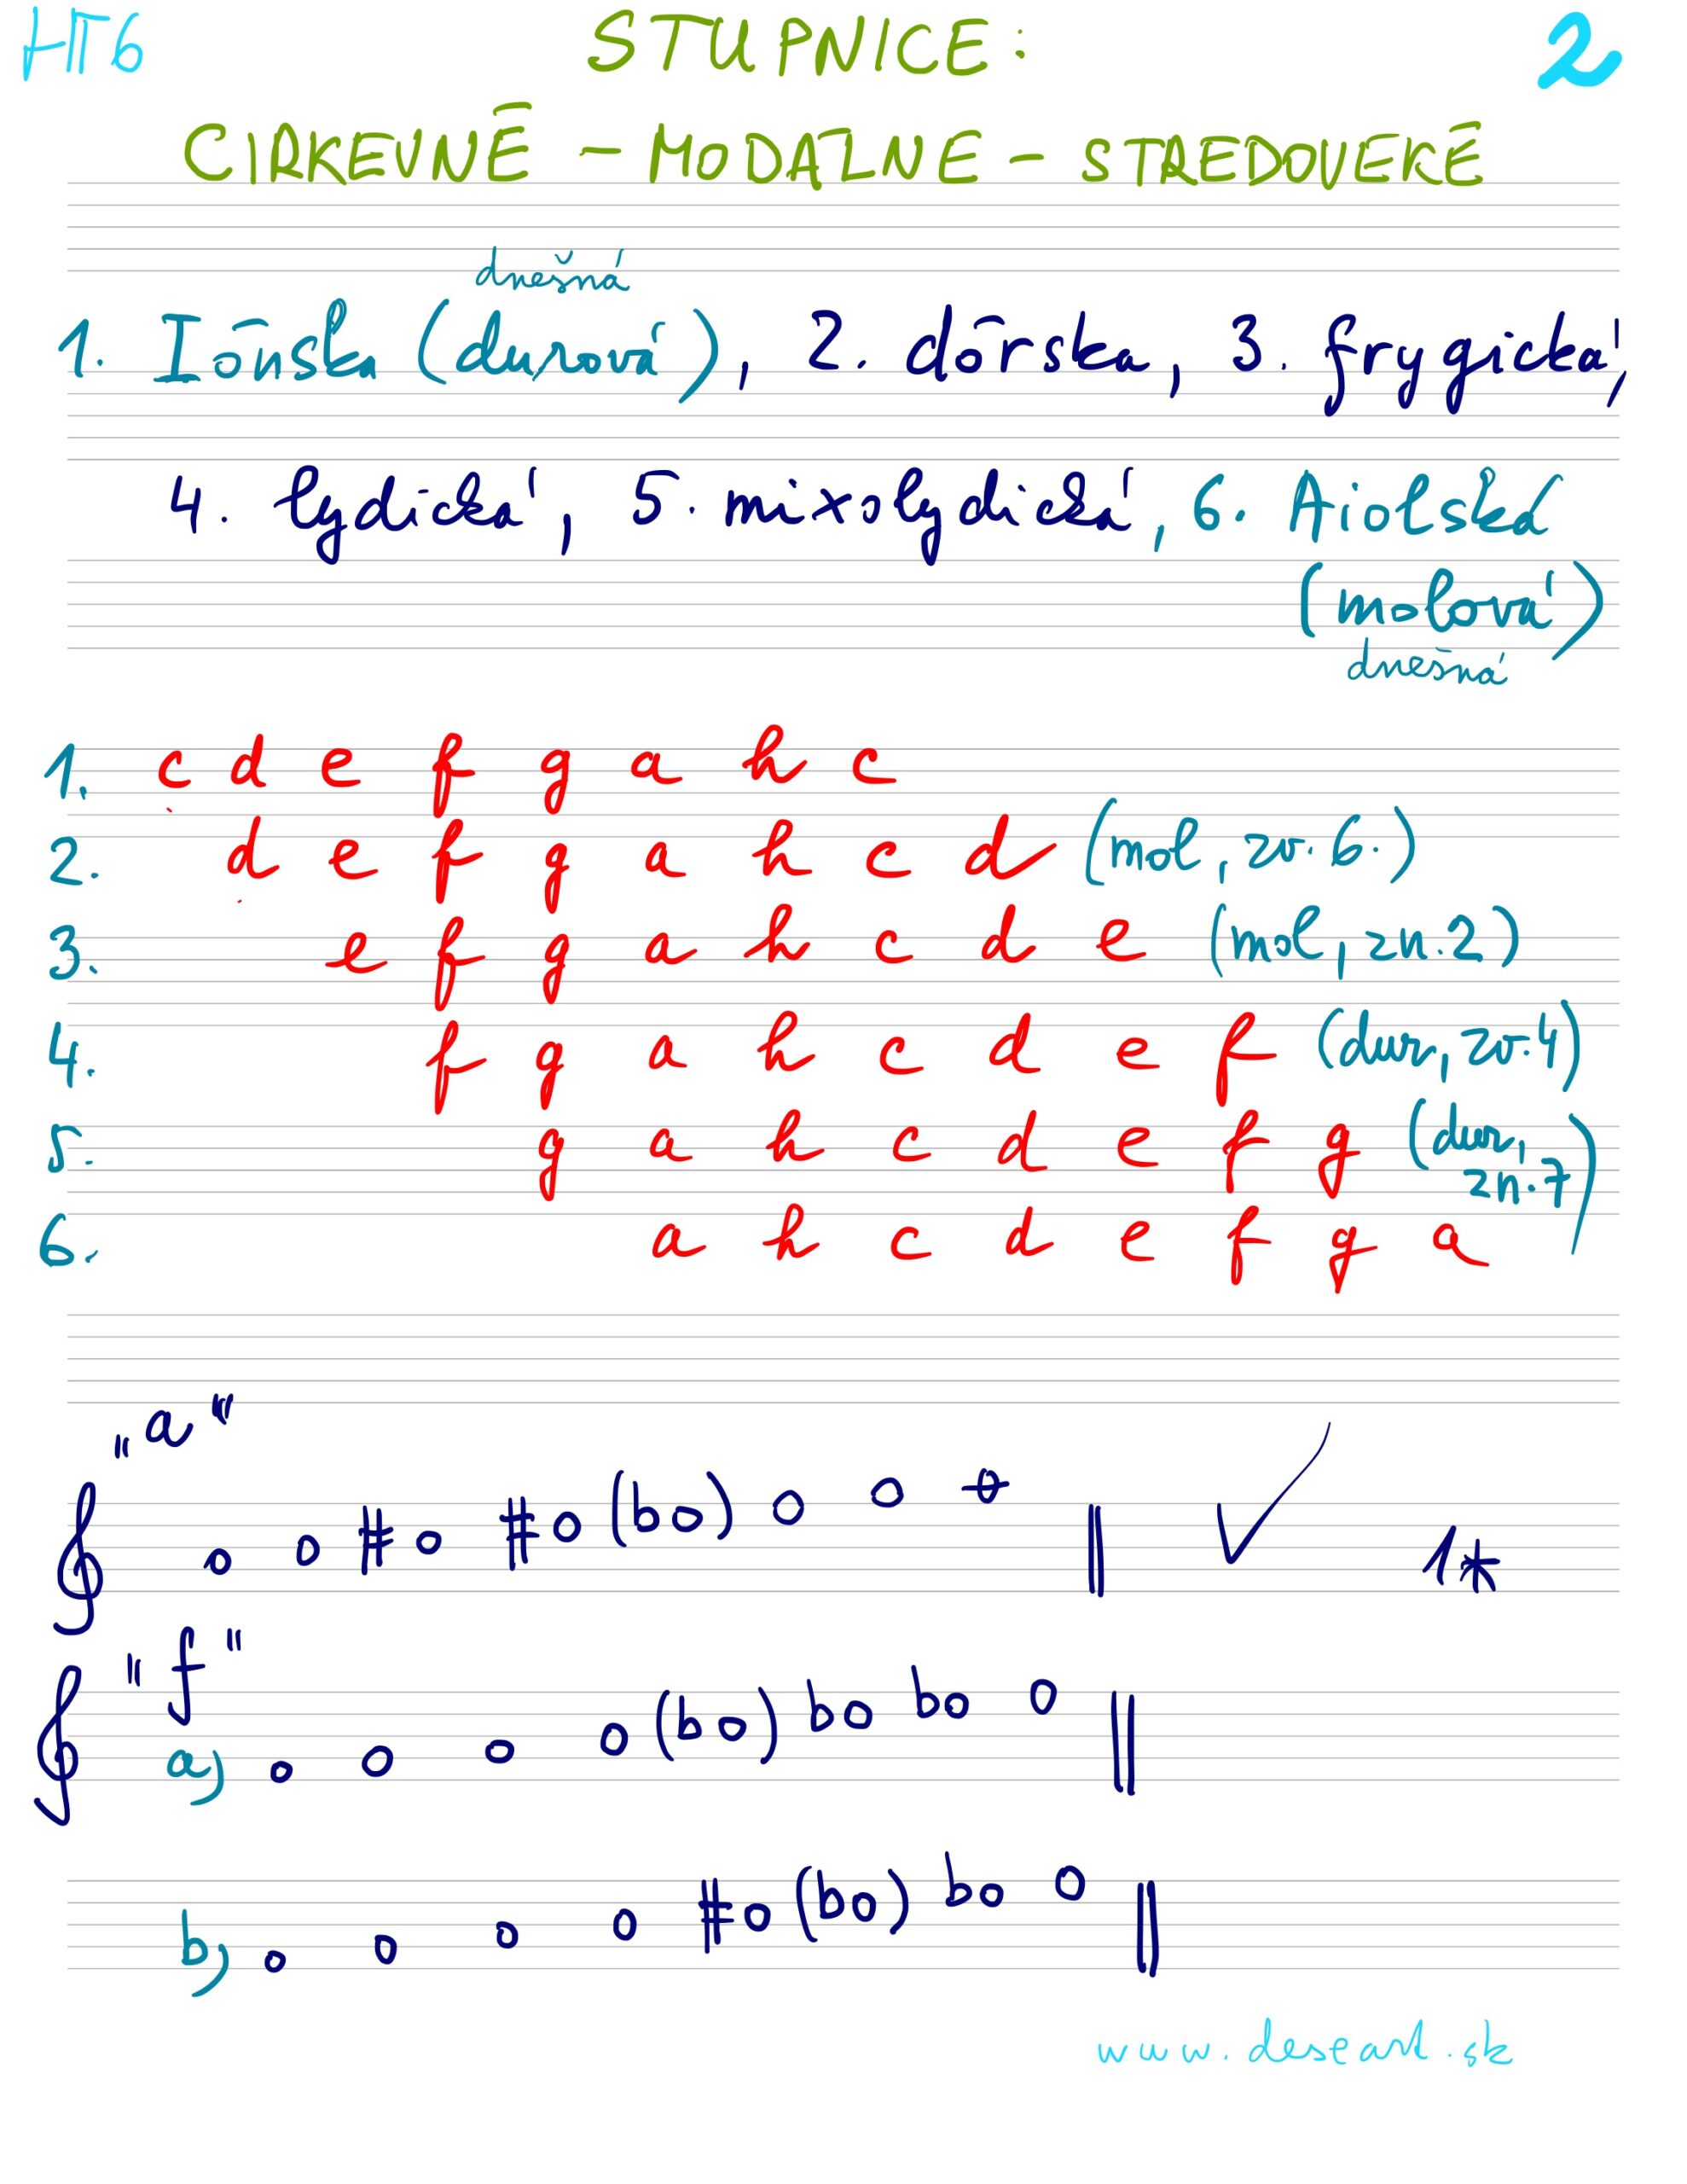 HT6
STUPNICE:
2
CIRKEVNÉ - MODÁLNE - STREDOVEKÉ
dnešná
1. Iónska (durová), 2. dórska, 3. frygická,
4. lydická, 5. mixolydická, 6. Aiolská
(molová)
dnešná
1. c d e f g a h c
2. d e f g a h c d (mol, zv. 6.)
3. e f g a h c d e (mol, zn. 2)
4. f g a h c d e f (dur, zv. 4)
5. g a h c d e f g (dur, zn. 7)
6. a h c d e f g a
"a"
1*
"f"
a)
b)
www.deseart.sk